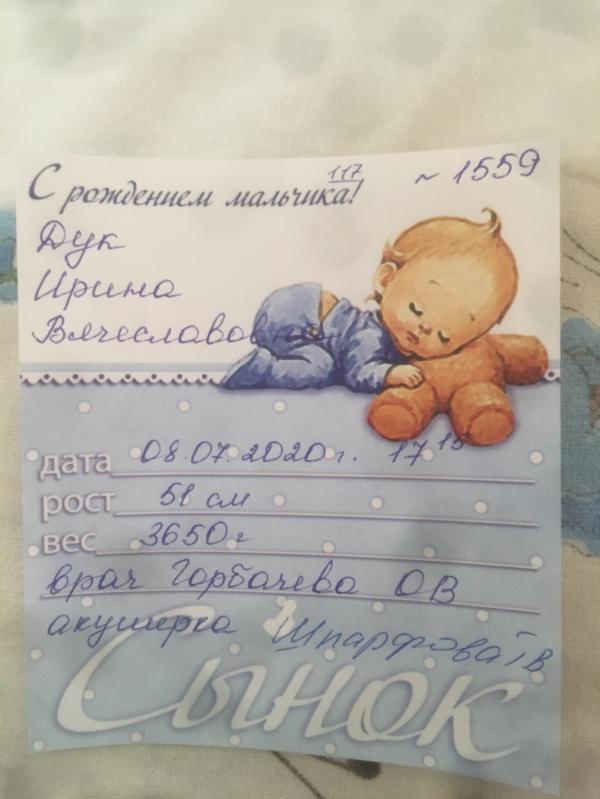 117 ~ 1559
С рождением мальчика!
Дук
Ирина
Вячеславовна
дата 08.07.2020г. 17 15
рост 51 см
вес 3650г
врач Горбачева ОВ
акушерка Шпарфова ТВ
Сынок